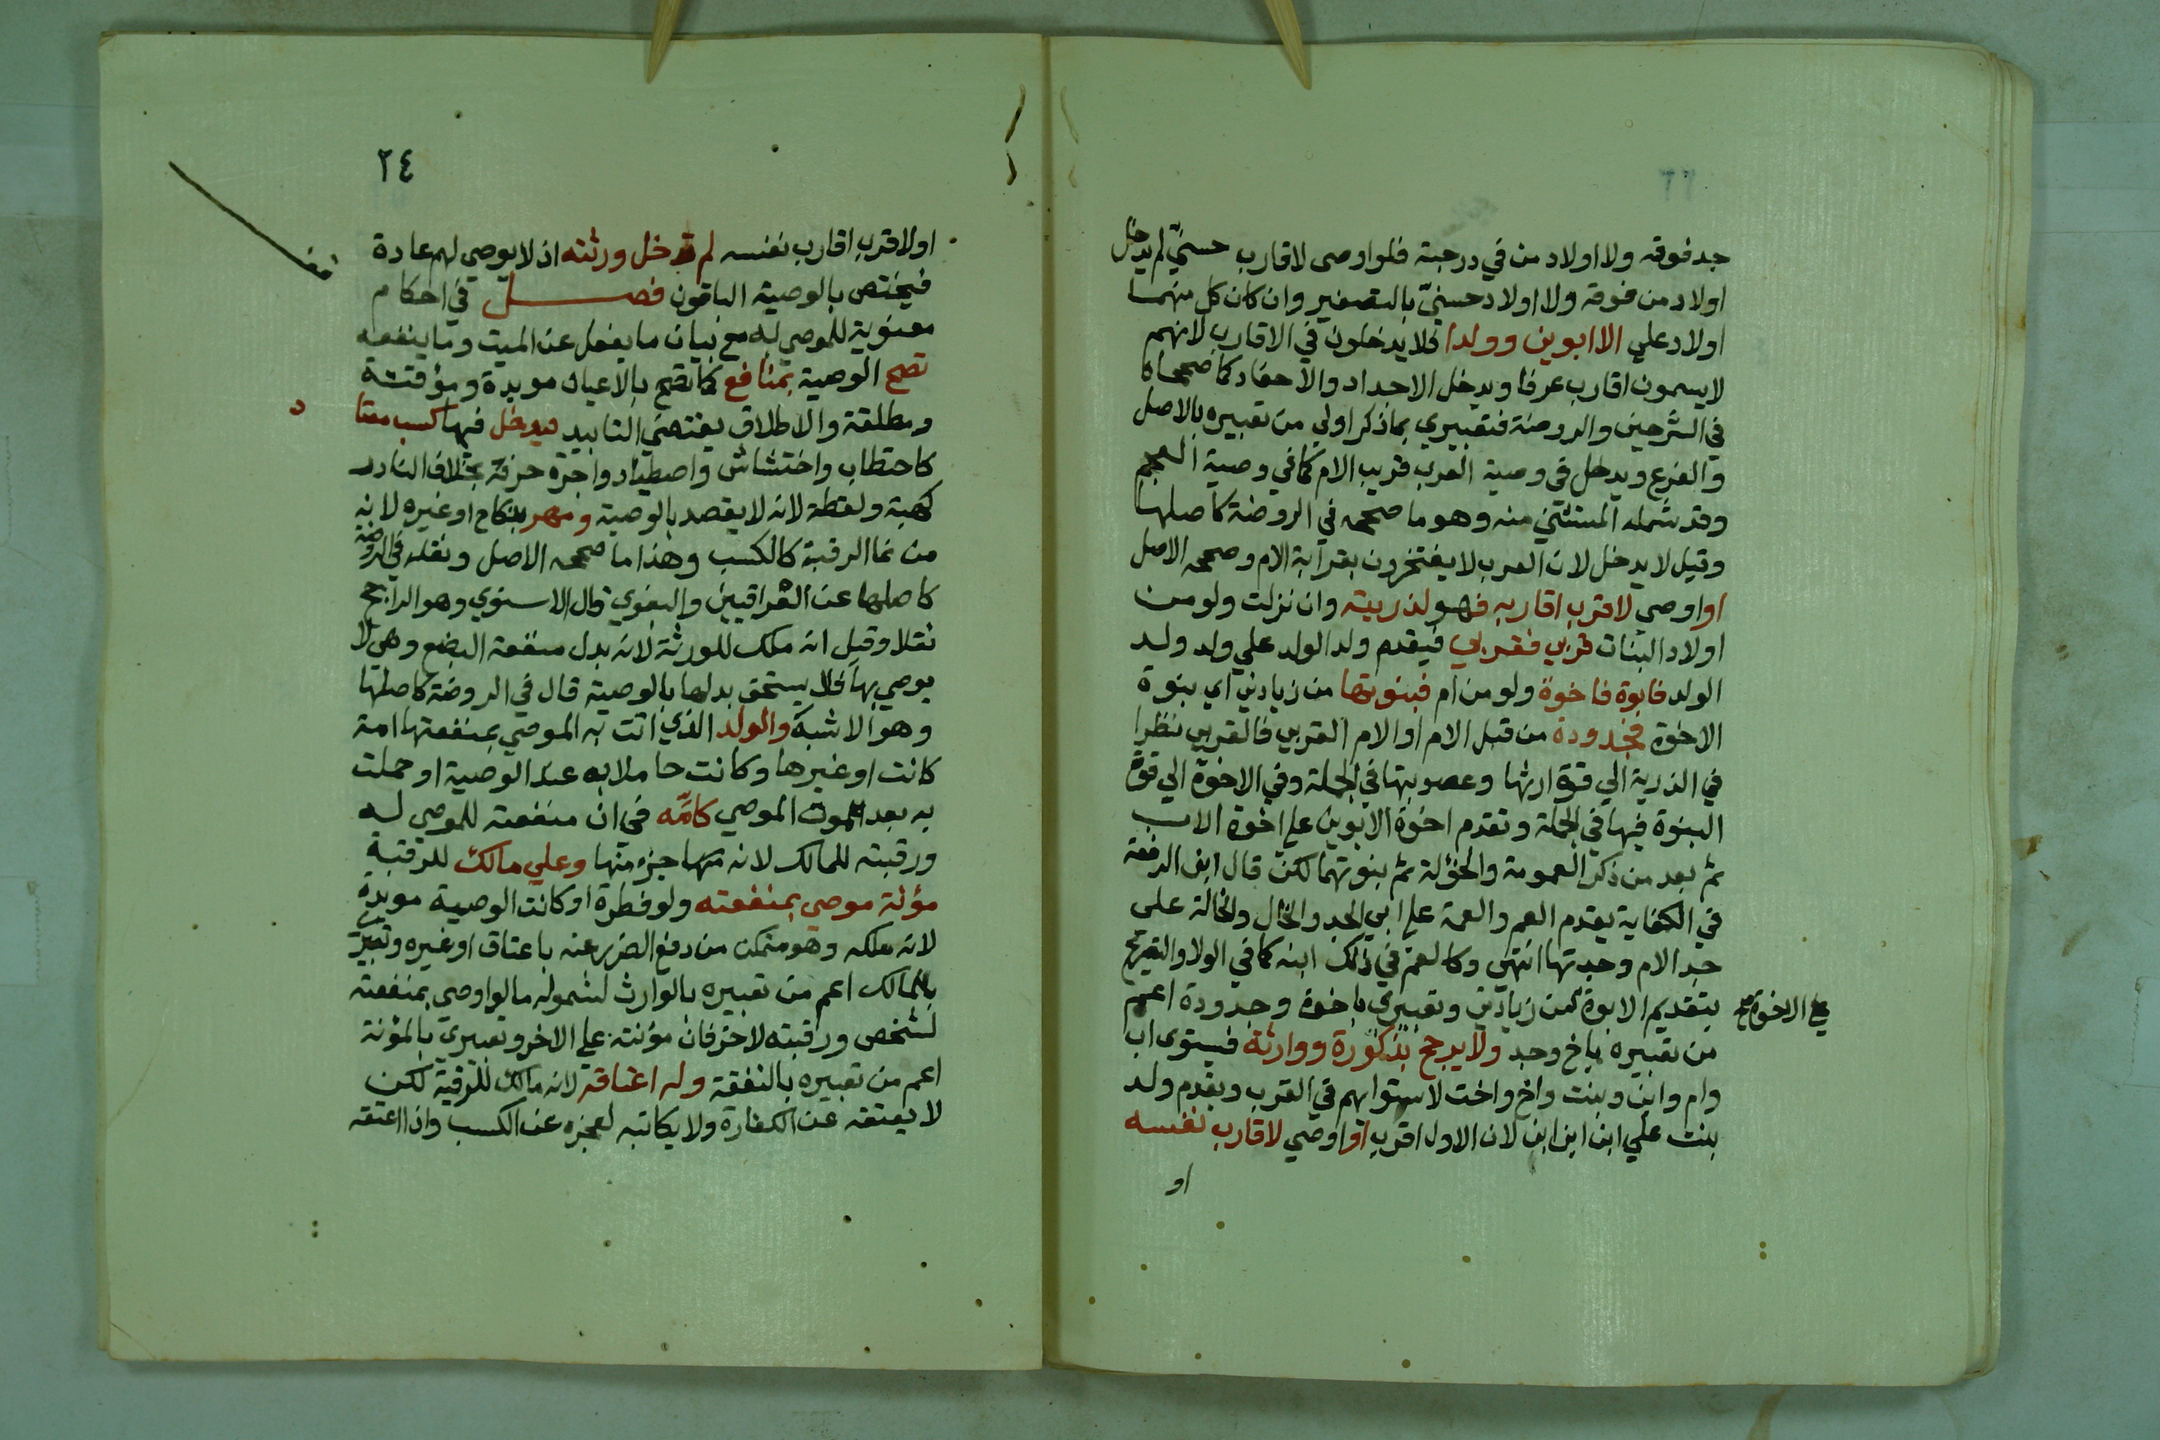 جد فوقه ولا اولاد من في درجته فلو اوصى لاقارب حسنيّ لم يدخل
اولاد من فوقه ولا اولاد حسنيّ بالتصغير وان كان كل منهما
اولاد علي الا ابوين وولدا فلا يدخلون في الاقارب لانهم
لا يسمون اقارب عرفا ويدخل الاجداد والاحفاد كما صححاه
في الشرحين والروضة فتعبيري بما ذكر اولى من تعبيره بالاصل
والفرع ويدخل في وصية العرب قريب الام كما في وصية العجم
وقد شمله المستثني منه وهو ما صححه في الروضة كاصلها
وقيل لا يدخل لان العرب لا يفتخرون بقرابة الام وصححه الاصل
او اوصي لاقرب اقاربه فهو لذريته وان نزلت ولو من
اولاد البنات قربي فقربي فيقدم ولد الولد علي ولد ولد
الولد فابوة فاخوة ولو من ام فبنوتها من زيادتي اي بنوة
الاخوة فجدودة من قبل الام او الام القربي فالقربي نظرا
في الذرية الي قوة ارثها وعصوبتها في الجملة وفي الاخوة الي قوة
البنوة فيها في الجملة وتقدم اخوة الابوين علي اخوة الاب
ثم بعد من ذكر العمومة والخؤلة ثم بنوتهما لكن قال ابن الرفعة
في الكفاية يقدم العم والعمة علي ابي الجد والخال والخالة على
جد الام وجدتها انتهي وكالعم في ذلك ابنه كما في الولا والتصريح
بتقديم الابوة من زيادتي وتعبيري باخوة وجدودة اعم
علي الاخوة صح
من تعبيره باخ وجد ولا يرجح بذكورة ووارثة فيستوي اب
وام وابن وبنت واخ واخت لاستوايهم في القرب ويقدم ولد
بنت علي ابن ابن ابن لان الاول اقرب او اوصي لاقارب نفسه
او
٢٤
او لاقرب اقارب نفسه لم تدخل ورثته اذ لا يوصى لهم عادة
فيختص بالوصية الباقون فصل في احكام
معنوية للموصي له مع بيان ما يفعل عن الميت وما ينفعه
تصح الوصية بمنافع كما تصح بالاعيان موبدة ومؤقتة
ومطلقة والاطلاق يقتضي التابيد فيدخل فيها كسب معتا
د
كاحتطاب واحتشاش واصطياد واجرة حرفة بخلاف النادر
كهبة ولقطة لانه لا يقصد بالوصية ومهر بنكاح او غيره لانه
من نما الرقبة كالكسب وهذا ما صححه الاصل ونقله في الروضة
كاصلها عن العراقيين والبغوي قال الاسنوي وهو الراجح
نقلا وقيل انه ملك للورثة لانه بدل منفعة البضع وهي لا
يوصي بها فلا يستحق بدلها بالوصية قال في الروضة كاصلها
وهو الاشبه والولد الذي اتت به الموصي بمنفعتها امة
كانت او غيرها وكانت حاملا به عند الوصية او حملت
به بعد الموت الموصي كامّه في ان منفعته للموصي له
ورقبته للمالك لانه جزء منها وعلي مالك للرقبة
مؤنة موصى بمنفعته ولو فطرة او كانت الوصية موبدة
لانه ملكه وهو متمكن من دفع الضرر عنه باعتاق او غيره وتعبيري
بالمالك اعم من تعبيره بالوارث لشموله ما لو اوصي بمنفعته
لشخص ورقبته لاخر فان مؤنته علي الاخر وتعبيري بالمؤنة
اعم من تعبيره بالنفقة وله اعتاقه لانه مالك للرقبة لكن
لا يعتقه عن الكفارة ولا يكاتبه لعجزه عن الكسب واذا اعتقه